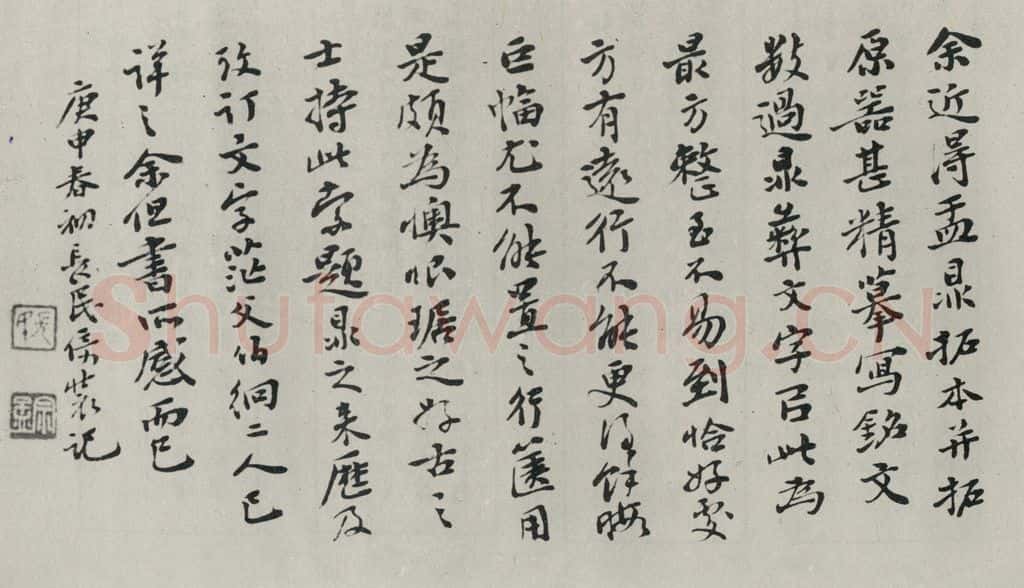 余近得盂鼎拓本并拓
原器甚精摹寫銘文
數過鼎彝文字㠯此為
最方整至不易到恰好處
方有遠行不能更得餘暇
巨幅尤不能置之行篋用
是頗為懊恨琚之好古之
士持此索題鼎之来歷及
攷訂文字茫父伯絅二人已
詳之余但書所感而已
庚申春初長民倚裝記
Shufawang.CN